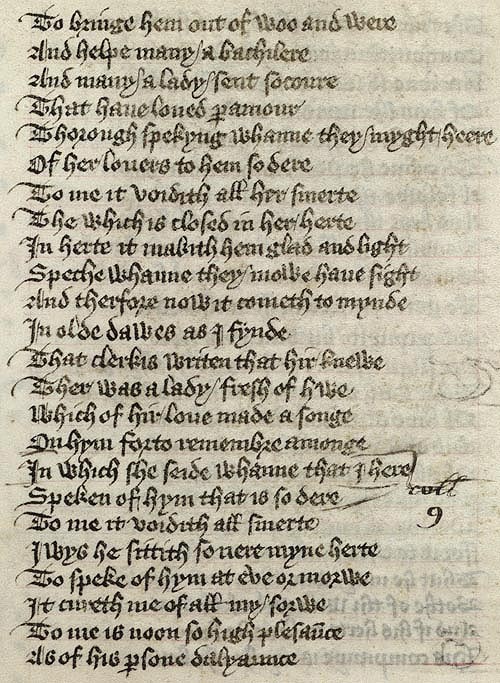 To bringe hem out of woo and were
And helpe many a bachilere
And many a lady sent socoure
That haue loued paramour
Thorough spekyng whanne they myght heere
Of her louers to hem so dere
To me it voidith all her smerte
The which is closed in her herte
In herte it makith hem glad and light
Speche whanne they mowe haue sight
And therfore now it cometh to mynde
In olde dawes as I fynde
That clerkis writen that hir knewe
Ther was a lady fresh of hwe
Which of hir loue made a songe
On hym forto remembre amonge
In which she seide whanne that I here
Speken of hym that is so dere
To me it voidith all smerte
Iwys he sittith so nere myne herte
To speke of hym at eve or morwe
It cureth me of all my sorwe
To me is noon so high plesaunce
As of his persone dalyaunce
coll
9